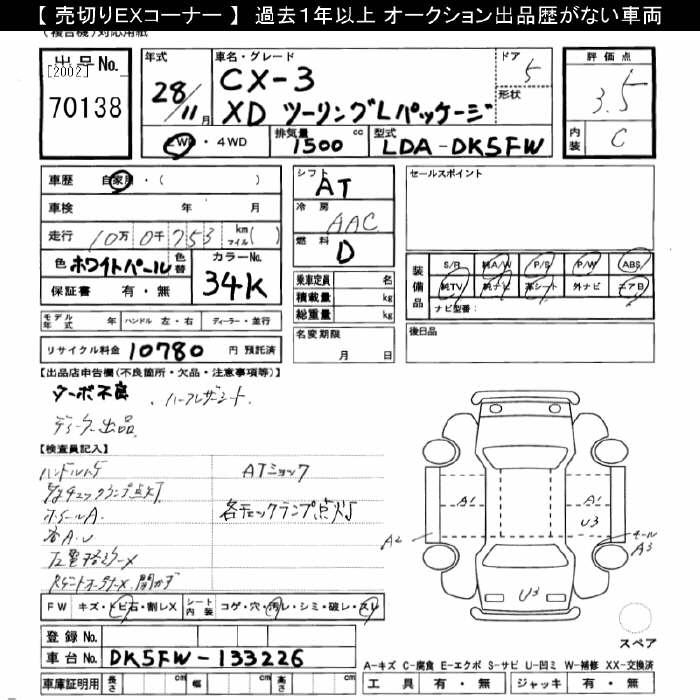 【 売切りEXコーナー 】 過去1年以上 オークション出品歴がない車両
(複合機)対応用紙
出品No. [2002] 70138
年式 28/11月
車名・グレード CX-3
XD ツーリングLパッケージ
ドア 5
形状
評価点 3.5
内装 C
2WD・4WD
排気量 1500 cc
型式 LDA-DK5FW
車歴 自家用・( )
車検 年 月
走行 10万0千753 km マイル( )
色 ホワイトパール 色替
カラーNo. 34K
保証書 有・無
シフト AT
冷房 AAC
燃料 D
乗車定員 名
積載量 kg
総重量 kg
セールスポイント
装備品 S/R 純A/W P/S P/W ABS
純TV 純ナビ 革シート 外ナビ エアB
ナビ型番:
モデル年式 年 ハンドル 左・右 ディーラー・並行
名変期限 月 日
後日品
リサイクル料金 10780 円 預託済
【出品店申告欄(不良箇所・欠品・注意事項等)】
ターボ不良 、ハーフレザーシート
ディーラー出品
【検査員記入】
ATショック
各チェックランプ点灯
ホイールA
各A.U
A1 A1
U3
A2
ホイール A3
U3
FW キズ・トビ石・割レX シート内装 コゲ・穴・汚レ・シミ・破レ・スレ
スペア
登録No.
車台No. DK5FW-133226
A-キズ C-腐食 E-エクボ S-サビ U-凹ミ W-補修 XX-交換済
車庫証明用 長さ cm 幅 cm 高さ cm
工具 有・無 ジャッキ 有・無